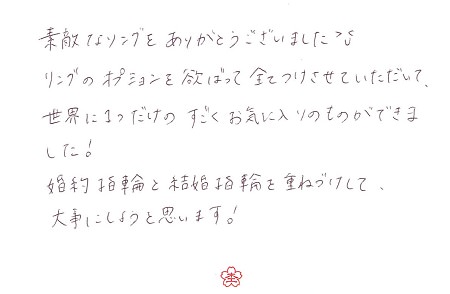 素敵なリングをありがとうございました♪
リングのオプションを欲ばって全てつけさせていただいて、
世界に1つだけのすごくお気に入りのものができま
した!
婚約指輪と結婚指輪を重ねづけして、
大事にしようと思います!